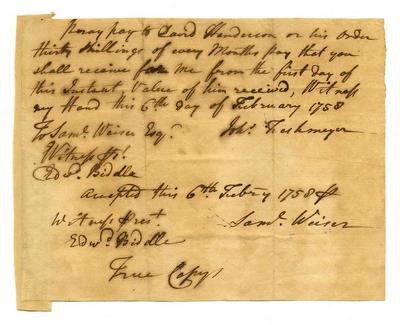 Pray pay to David Henderson or his order
thirty Shillings of every Months pay that you
shall receive for Me from the first day of
this Instant, Value of him received, Witness
my Hand this 6th day of February 1758
To Saml. Weiser Esqr.
Witness
Edwd. Biddle
accepted this 6th Febry 1758
Witness
Saml. Weiser
Edwd. Biddle
True Copy